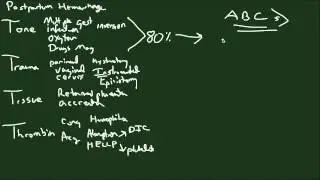 Postpartum Hemorrhage
Tone
Multiple Gest
infection
oxytocin
Drugs Mag
inversion
80%
ABC's
Trauma
perineal
vaginal
cervix
hysterotomy
Instrumental
Episiotomy
Tissue
Retained placenta
accreta
Thrombin
Cong Hemophilia
Acq Abruption
DIC
HELLP